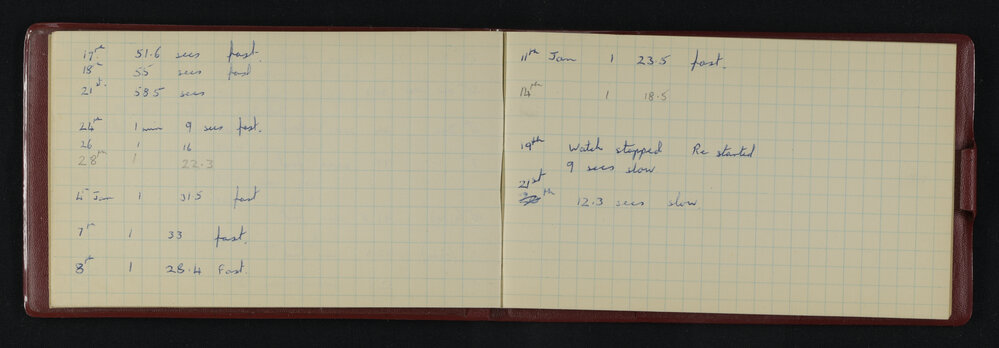 17th 51.6 secs fast.
18th 55 secs fast
21st. 58.5 secs
24th 1 min 9 secs fast.
26 1 16
28th 1 22.3
4th Jan 1 31.5 fast
7th 1 33 fast.
8th 1 28.4 Fast.
11th Jan 1 23.5 fast.
14th 1 18.5
19th Watch stopped Re started
9 secs slow
21st
th 12.3 secs slow